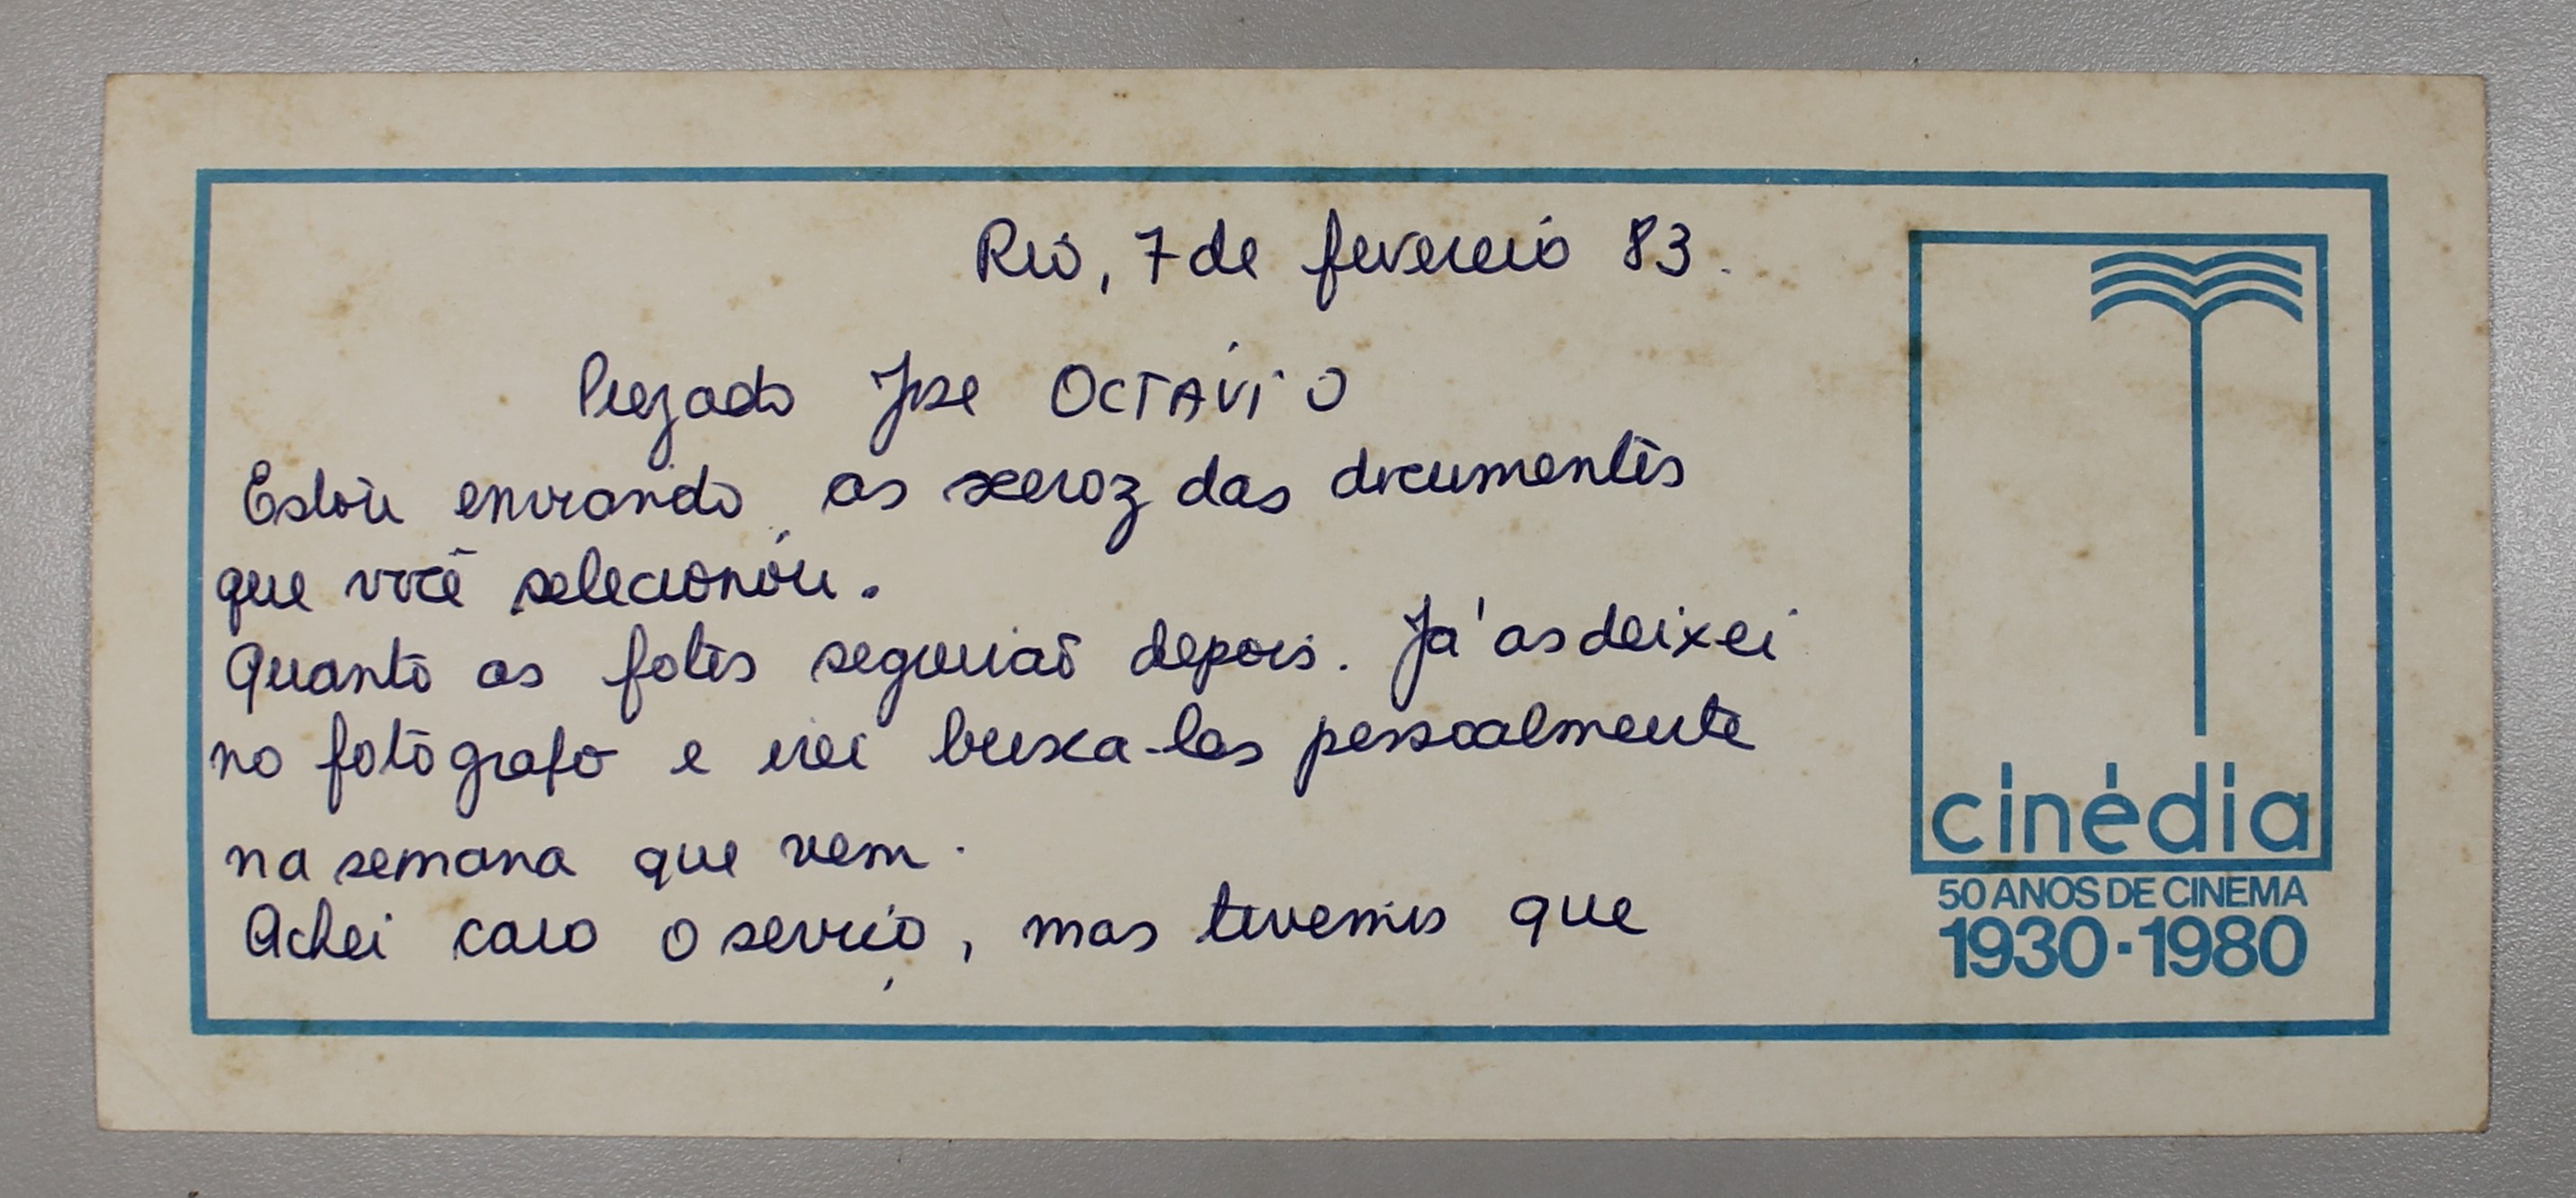 Rio, 7 de fevereiro 83.
Prezado José OCTÁVIO
Estou enviando as xeroz das documentos
que você selecionou.
Quanto as fotos seguirão depois. Já as deixei
no fotógrafo e irei busca-las pessoalmente
na semana que vem.
Achei caro o serviço, mas tivemos que
cinédia
50 ANOS DE CINEMA
1930·1980